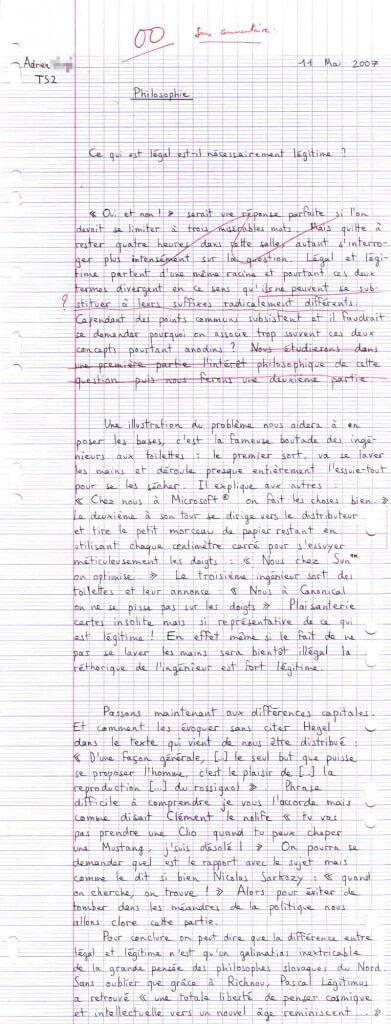 00 Sans commentaire.
Adrien
TS2
11 Mai 2007
Philosophie
Ce qui est légal est-il nécessairement légitime ?
« Oui et non ! » serait une réponse parfaite si l'on
devait se limiter à trois misérables mots. Mais quitte à
rester quatre heures dans cette salle, autant s'interro-
ger plus intensément sur la question. Légal et légi-
time partent d'une même racine et pourtant ces deux
termes divergent en ce sens qu'ils ne peuvent se sub-
? stituer à leurs suffixes radicalement différents.
Cependant des points communs subsistent et il faudrait
se demander pourquoi on associe trop souvent ces deux
concepts pourtant anodins ? Nous étudierons dans
une première partie l'intérêt philosophique de cette
question puis nous ferons une deuxième partie
Une illustration du problème nous aidera à en
poser les bases, c'est la fameuse boutade des ingé-
nieurs aux toilettes : le premier sort, va se laver
les mains et déroule presque entièrement l'essuie-tout
pour se les sécher. Il explique aux autres :
« Chez nous à Microsoft® on fait les choses bien. »
Le deuxième à son tour se dirige vers le distributeur
et tire le petit morceau de papier restant en
utilisant chaque centimètre carré pour s'essuyer
méticuleusement les doigts : « Nous chez Sun™
on optimise » Le troisième ingénieur sort des
toilettes et leur annonce : « Nous à Canonical
on ne se pisse pas sur les doigts » Plaisanterie
certes insolite mais si représentative de ce qui
est légitime ! En effet même si le fait de ne
pas se laver les mains sera bientôt illégal la
réthorique de l'ingénieur est fort légitime.
Passons maintenant aux différences capitales.
Et comment les évoquer sans citer Hegel
dans le texte qui vient de nous être distribué :
« D'une façon générale, [...] le seul but que puisse
se proposer l'homme, c'est le plaisir de [...] la
reproduction [...] du rossignol » Phrase
difficile à comprendre je vous l'accorde mais
comme disait Clément le nolife « tu vas
pas prendre une Clio quand tu peux choper
une Mustang, j'suis désolé ! » On pourra se
demander quel est le rapport avec le sujet mais
comme le dit si bien Nicolas Sarkozy : « quand
on cherche, on trouve ! » Alors pour éviter de
tomber dans les méandres de la politique nous
allons clore cette partie.
Pour conclure on peut dire que la différence entre
légal et légitime n'est qu'un galimatias inextricable
de la grande pensée des philosophes slovaques du Nord
Sans oublier que grâce à Richnou, Pascal Légitimus
a retrouvé « une totale liberté de penser cosmique
et intellectuelle vers un nouvel âge réminiscent ... »